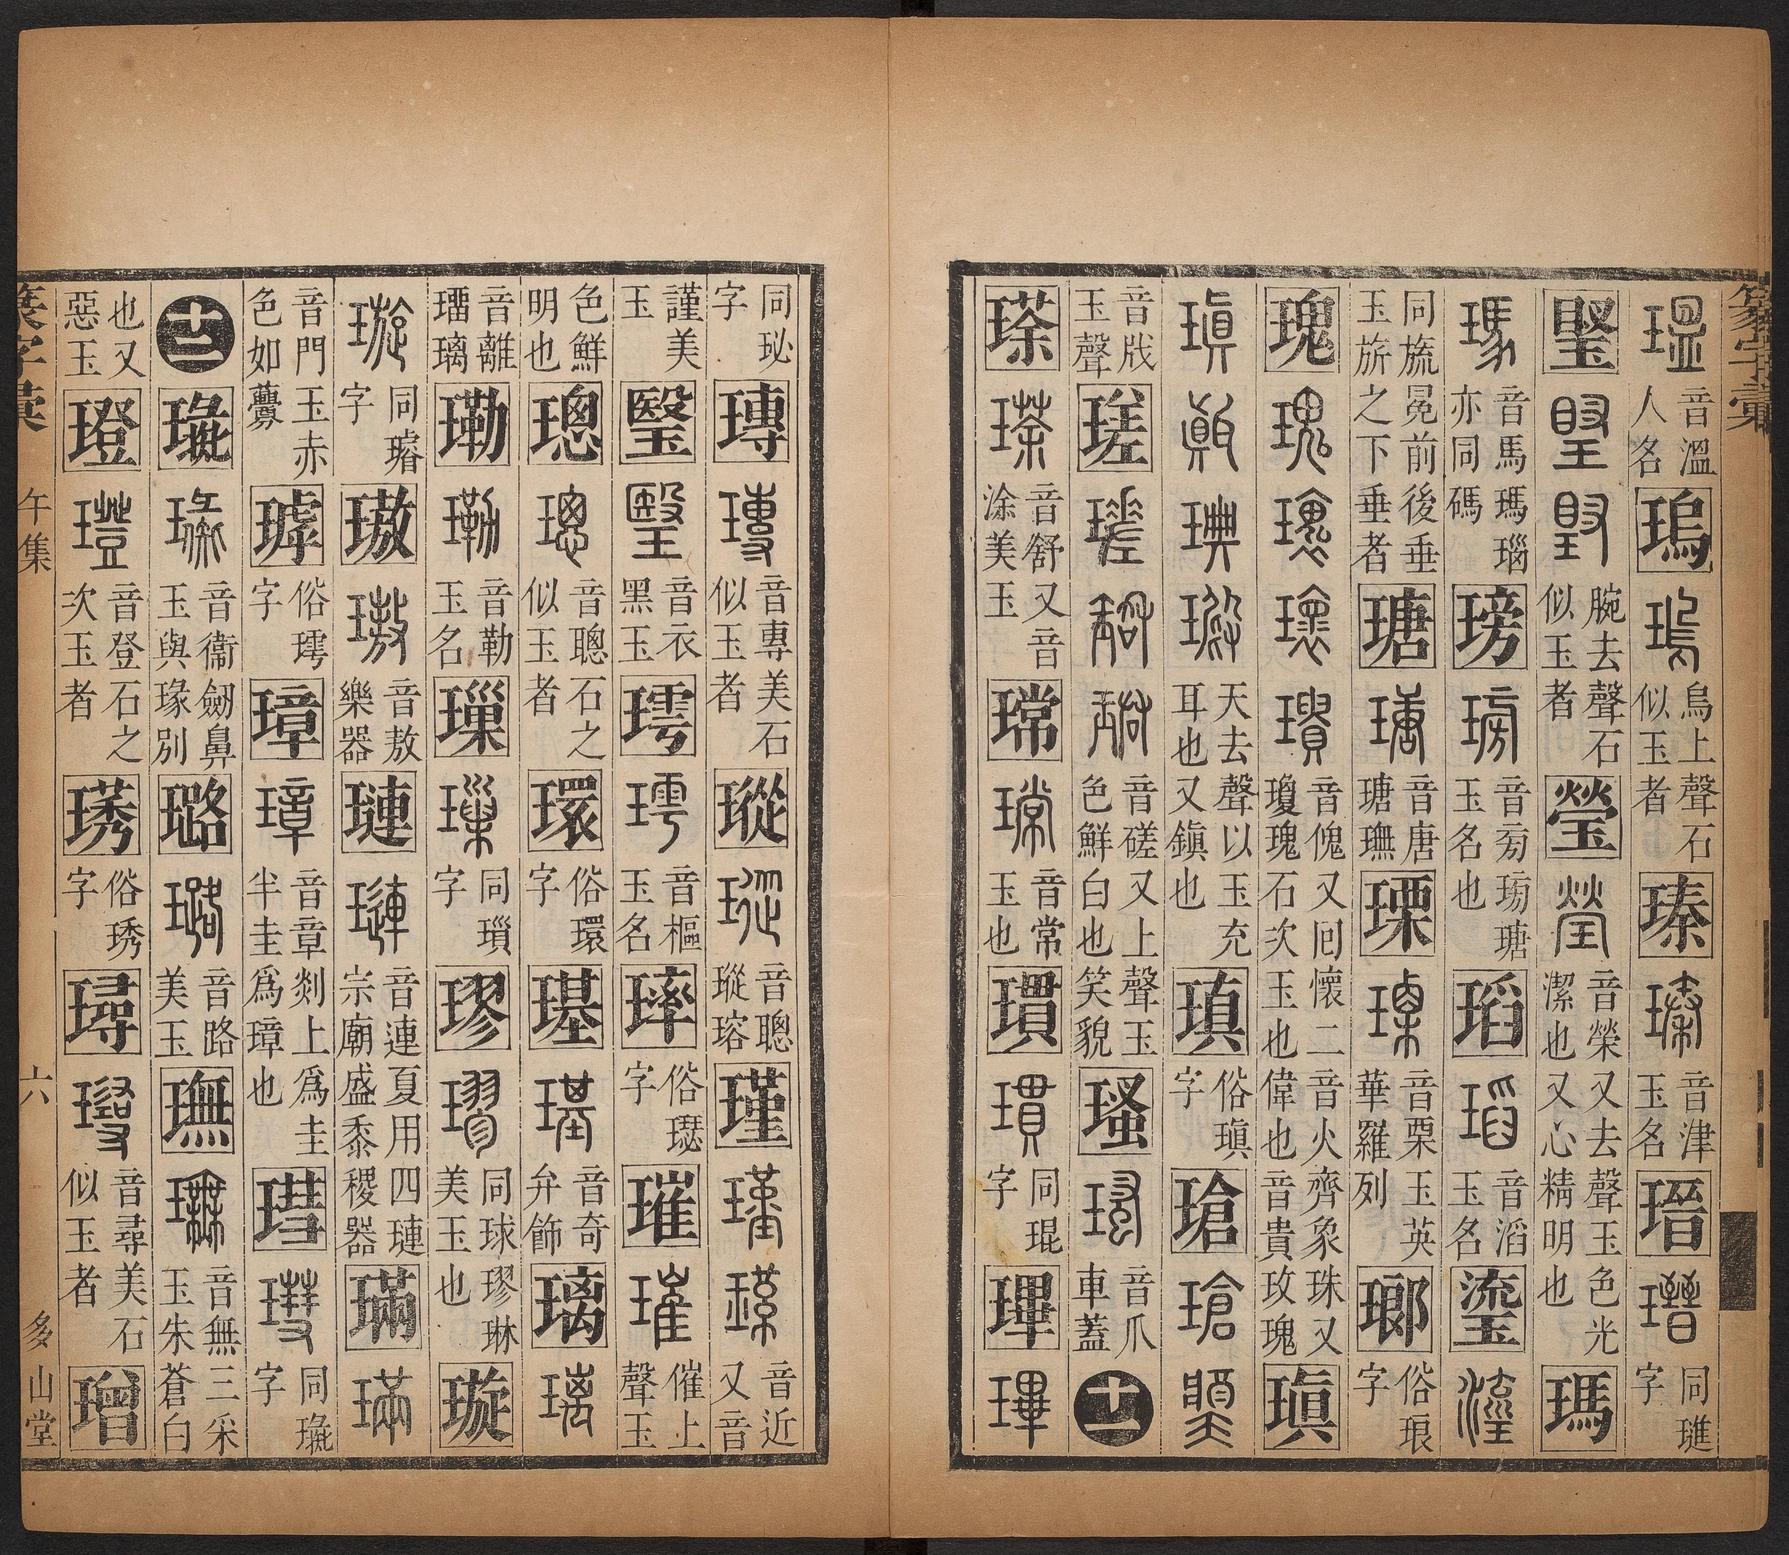 篆字彙
瑥 音溫人名 瑦 瑦 鳥上聲石似玉者 瑧 瑧 音津玉名 瑨 瑨 同璡字
腕去聲石似玉者 瑩 瑩 音榮又去聲玉色光潔也又心精明也 瑪
瑪 音馬瑪瑙亦同碼 音旁 瑭玉名也 瑫 瑫 音滔玉名 瑬 瑬
同旒冕前後垂玉旂之下垂者 瑭 瑭 音唐瑭璑 瑮 瑮 音栗玉英華羅列 瑯 俗琅字
瑰 瑰 音傀又回懷二音火齊象珠又瓊瑰石次玉也偉也音貴玫瑰 瑱
瑱 天去聲以玉充耳也又鎮也 瑱 俗瑱字 瑲 瑲
音戕玉聲 瑳 瑳 音磋又上聲玉色鮮白也笑貌 瑵 瑵 音爪車蓋 十一
瑹 瑹 音舒又音涂美玉 瑺 瑺 音常玉也 瑻 瑻 同琨字 㻫 㻫
同珌字 瑼 瑼 音專美石似玉者 瑽 瑽 音聰瑽瑢 瑾 瑾 音近又音
謹美玉 瑿 瑿 音衣黑玉 㻬 㻬 音樞玉名 俗璱字 璀 璀 催上聲玉
色鮮明也 璁 璁 音聰石之似玉者 環 俗環字 璂 璂 音奇弁飾 璃 璃
音離瑠璃 音勒玉名 璅 璅 同瑣字 璆 璆 同球璆琳美玉也 璇
璇 同璿字 璈 璈 音敖樂器 璉 璉 音連夏用四璉宗廟盛黍稷器 璊 璊
音門玉赤色如虋 俗㻬字 璋 璋 音章剡上爲圭半圭爲璋也 同璏字
十二 璏 璏 音衞劎鼻玉與瑑別 璐 璐 音路美玉 璑 璑 音無三采玉朱蒼白
也又惡玉 璒 璒 音登石之次玉者 璓 俗琇字 璕 璕 音尋美石似玉者 璔
篆字彙 午集 六 多山堂